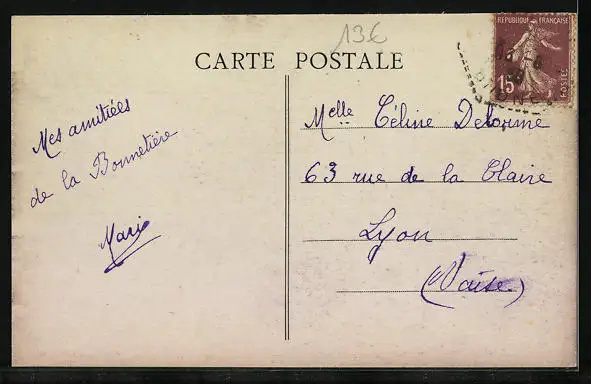 13€
CARTE POSTALE
REPUBLIQUE FRANÇAISE
15
POSTES
Mes amitiées
de la Bonnetière
Marie
Melle Céline Delorme
63 rue de la Claire
Lyon
(Vaise)